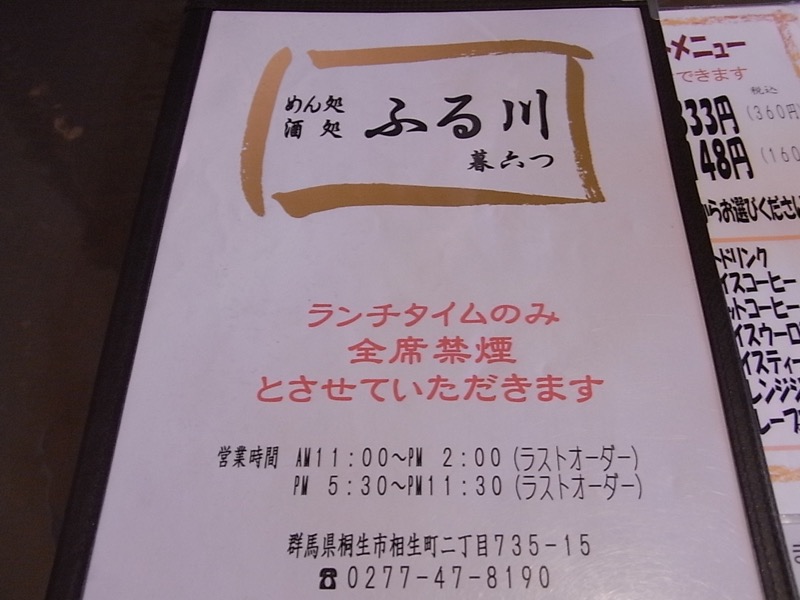 めん処
酒処
ふる川
暮六つ
ランチタイムのみ
全席禁煙
とさせていただきます
営業時間 AM11:00〜PM 2:00(ラストオーダー)
PM 5:30〜PM11:30(ラストオーダー)
群馬県桐生市相生町二丁目735-15
☎0277-47-8190
メニュー
できます
税込
333円(360円
148円(160
からお選びください
ドリンク
イスコーヒー
ットコーヒー
イスウーロ
イスティー
レンジジ
レープフ